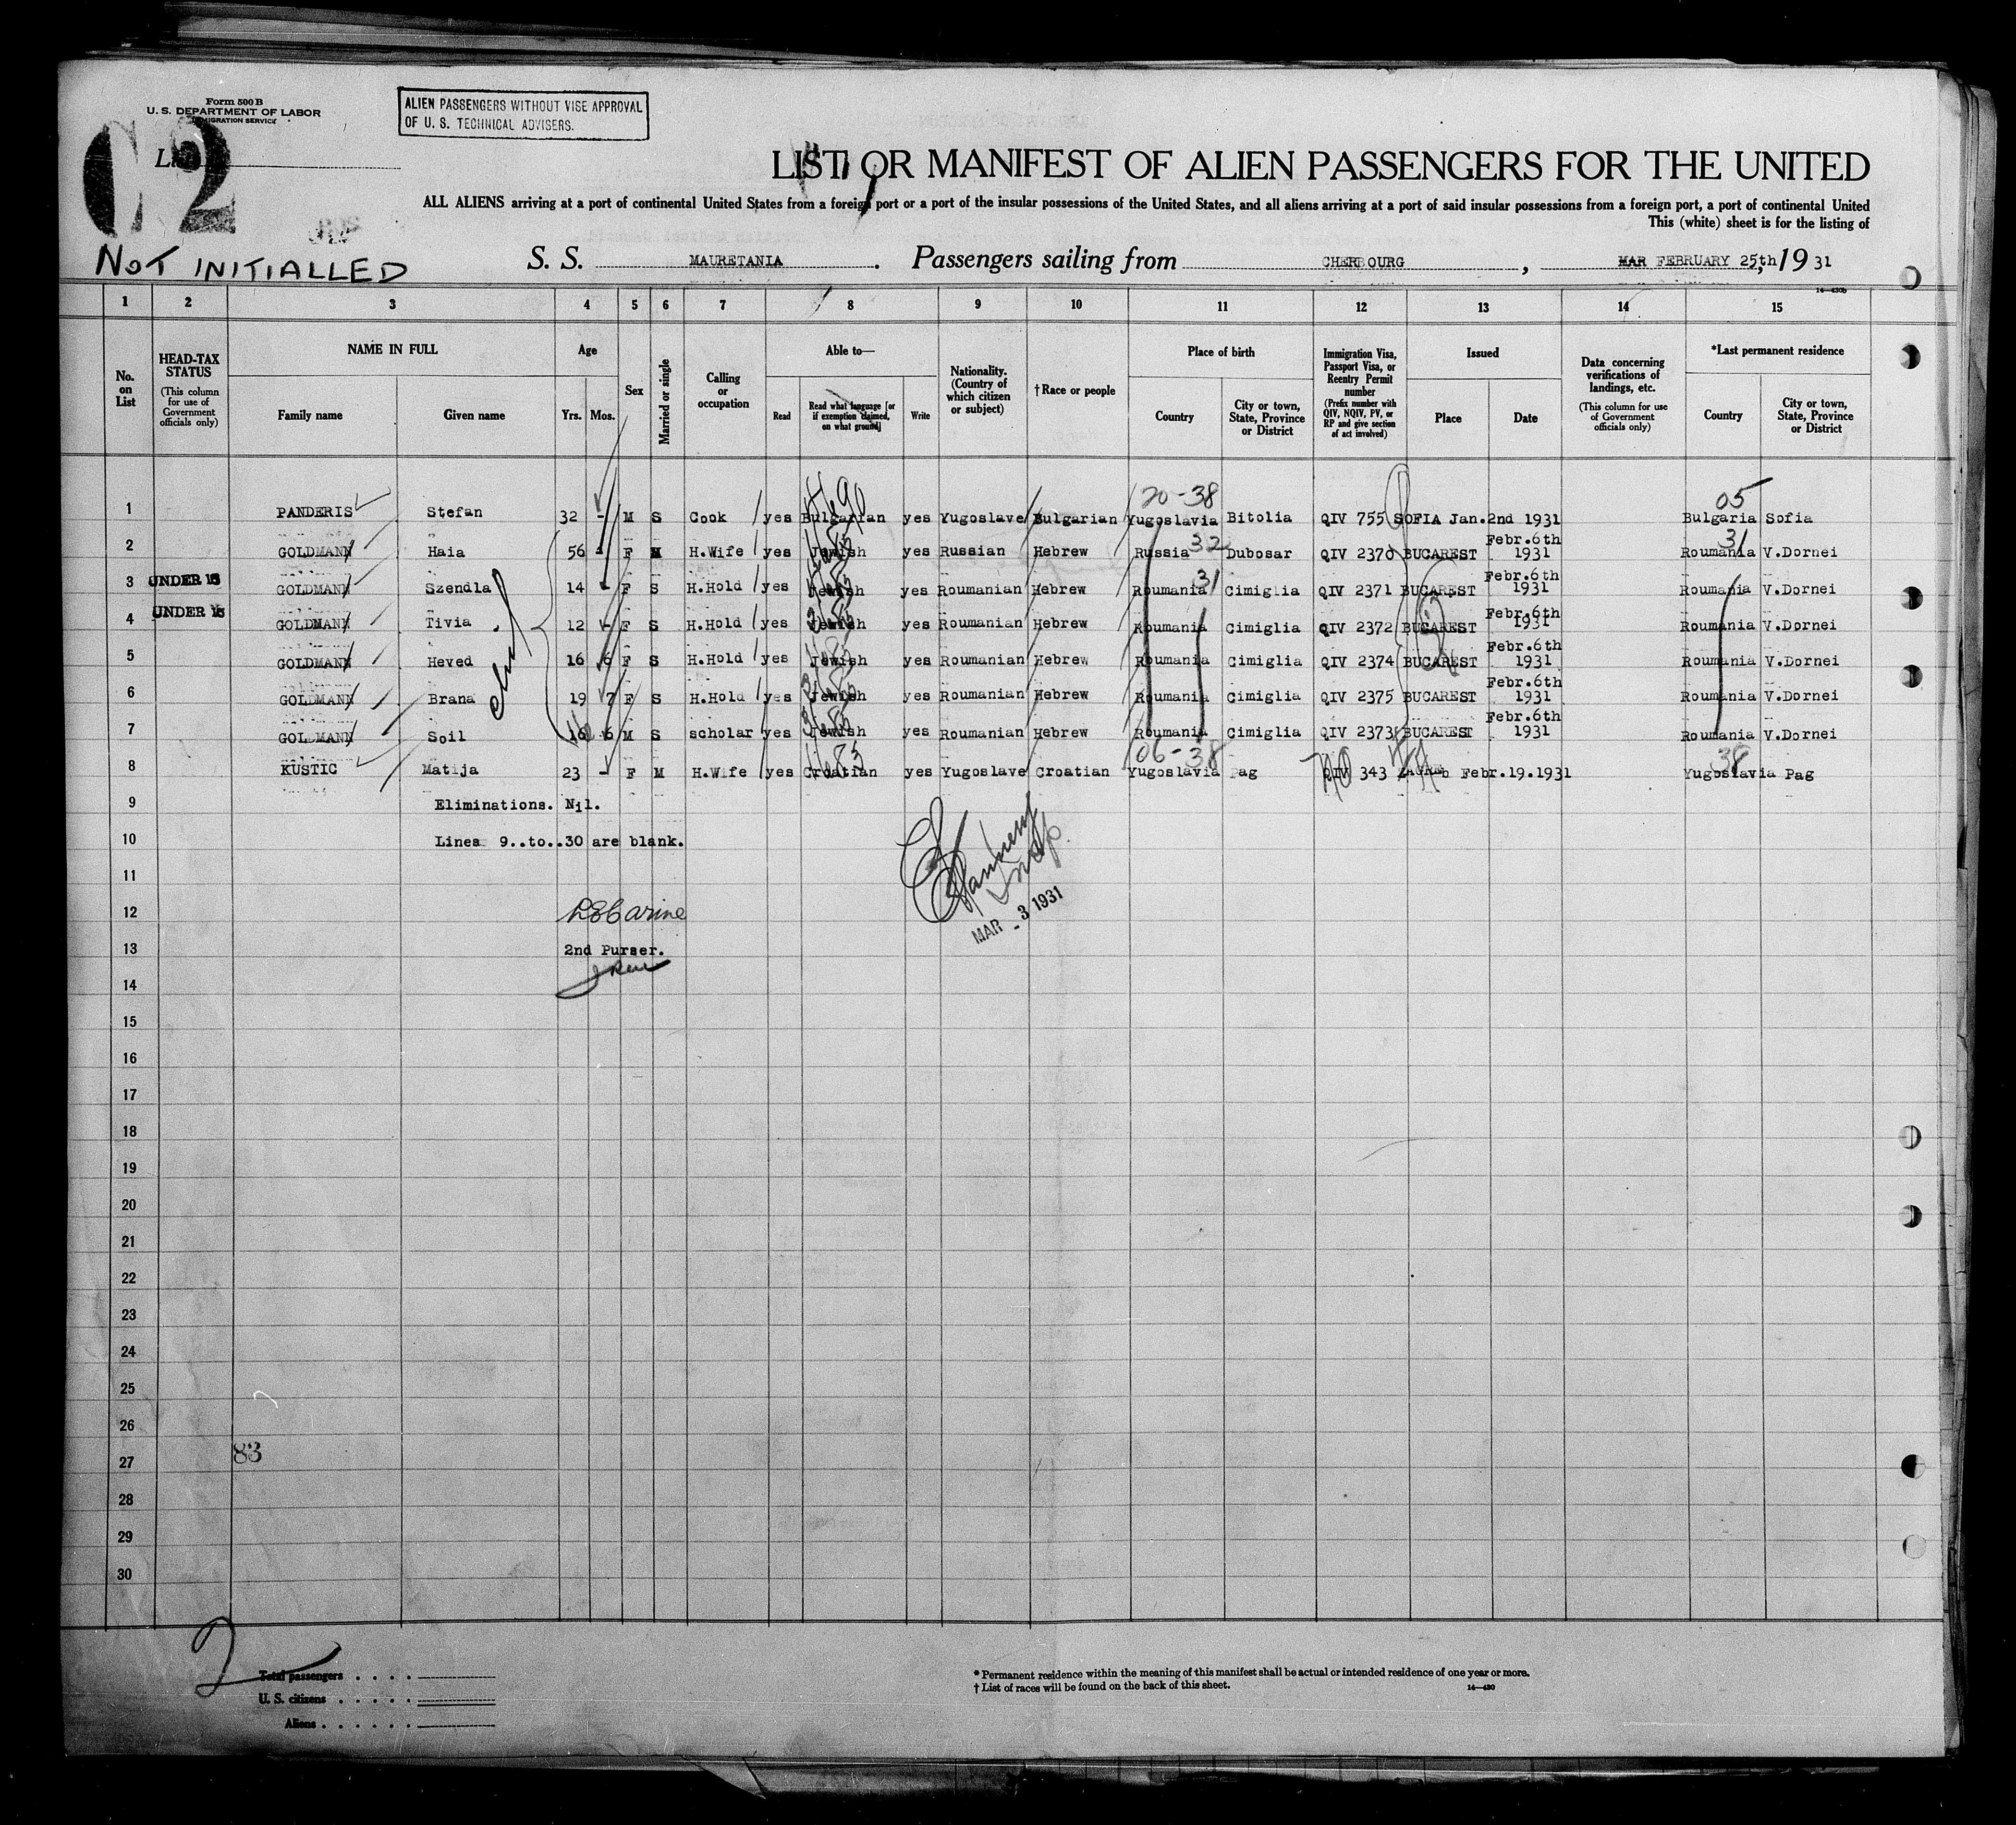 Form 500 B
U. S. DEPARTMENT OF LABOR
IMMIGRATION SERVICE
ALIEN PASSENGERS WITHOUT VISE APPROVAL
OF U. S. TECHNICAL ADVISERS.
2
NOT INITIALLED
LIST OR MANIFEST OF ALIEN PASSENGERS FOR THE UNITED
ALL ALIENS arriving at a port of continental United States from a foreign port or a port of the insular possessions of the United States, and all aliens arriving at a port of said insular possessions from a foreign port, a port of continental United
This (white) sheet is for the listing of
S. S. MAURETANIA. Passengers sailing from CHERBOURG, MAR FEBRUARY 25th, 19 31
14—430b
1 2 3 4 5 6 7 8 9 10 11 12 13 14 15
No. on List
HEAD-TAX STATUS
(This column for use of Government officials only)
NAME IN FULL
Family name Given name
Age
Yrs. Mos.
Sex
Married or single
Calling or occupation
Able to—
Read
Read what language [or if exemption claimed, on what ground]
Write
Nationality. (Country of which citizen or subject)
† Race or people
Place of birth
Country
City or town, State, Province or District
Immigration Visa, Passport Visa, or Reentry Permit number
(Prefix number with QIV, NQIV, PV, or RP and give section of act involved)
Issued
Place Date
Data concerning verifications of landings, etc.
(This column for use of Government officials only)
*Last permanent residence
Country
City or town, State, Province or District
20-38 05
1 PANDERIS Stefan 32 - M S Cook yes Bulgarian yes Yugoslave Bulgarian Yugoslavia Bitolia QIV 755 SOFIA Jan.2nd 1931 Bulgaria Sofia
32 31
2 GOLDMANN Haia 56 - F M H.Wife yes Jewish yes Russian Hebrew Russia Dubosar QIV 2370 BUCAREST Febr.6th 1931 Roumania V.Dornei
31
3 UNDER 16 GOLDMANN Szendla 14 - F S H.Hold yes Jewish yes Roumanian Hebrew Roumania Cimiglia QIV 2371 BUCAREST Febr.6th 1931 Roumania V.Dornei
4 UNDER 16 GOLDMANN Tivia 12 - F S H.Hold yes Jewish yes Roumanian Hebrew Roumania Cimiglia QIV 2372 BUCAREST Febr.6th 1931 Roumania V.Dornei
5 GOLDMANN Heved 16 6 F S H.Hold yes Jewish yes Roumanian Hebrew Roumania Cimiglia QIV 2374 BUCAREST Febr.6th 1931 Roumania V.Dornei
6 GOLDMANN Brana 19 7 F S H.Hold yes Jewish yes Roumanian Hebrew Roumania Cimiglia QIV 2375 BUCAREST Febr.6th 1931 Roumania V.Dornei
7 GOLDMANN Soil 16 6 M S scholar yes Jewish yes Roumanian Hebrew Roumania Cimiglia QIV 2373 BUCAREST Febr.6th 1931 Roumania V.Dornei
06-38 38
8 KUSTIC Matija 23 - F M H.Wife yes Croatian yes Yugoslave Croatian Yugoslavia Pag QIV 343 ZAGREB Febr.19.1931 Yugoslavia Pag
9 Eliminations. Nil.
10 Lines 9..to..30 are blank.
11
12
MAR - 3 1931
13 2nd Purser.
14
15
16
17
18
19
20
21
22
23
24
25
26
83
27
28
29
30
2
Total passengers
U. S. citizens
Aliens
* Permanent residence within the meaning of this manifest shall be actual or intended residence of one year or more.
† List of races will be found on the back of this sheet.
14—430